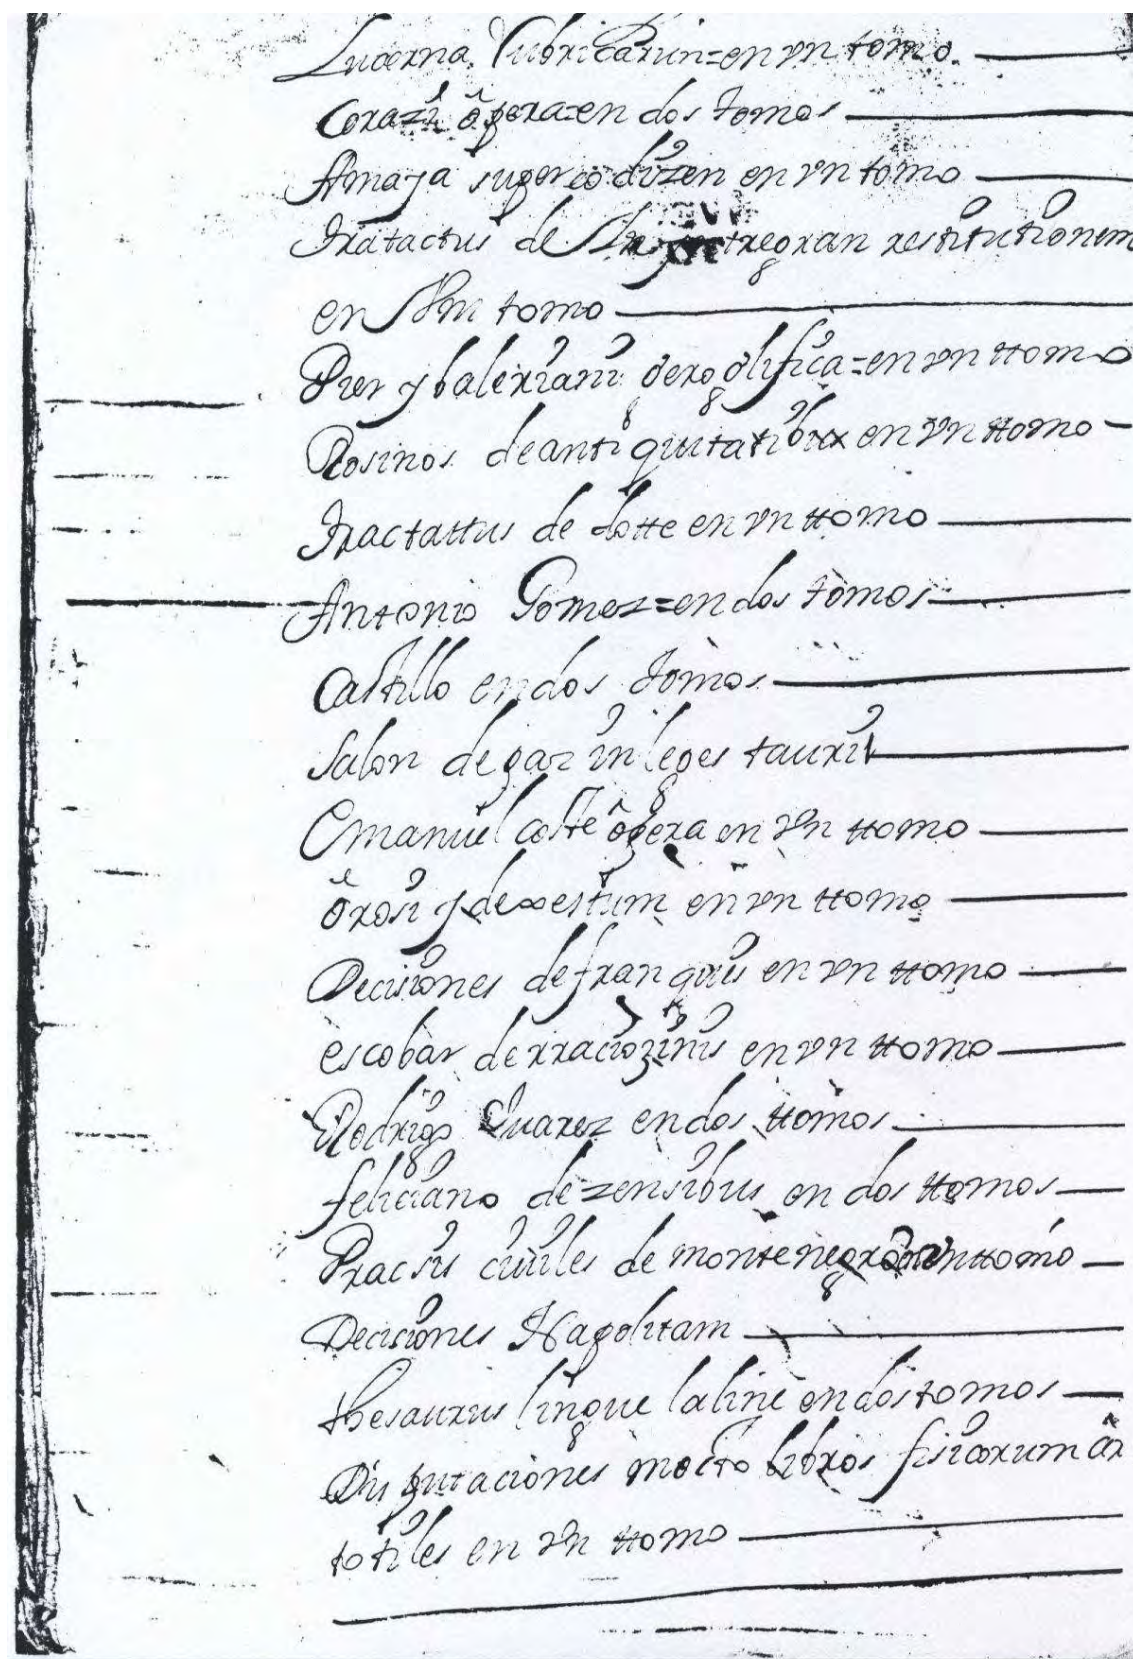 Lucerna Rubricarun=en vn tomo.
Corazi õpera=en dos tomos
Amaya super codizen en vn tomo
tratactus de yntregran restitutionem
en Vn tomo
Pier y baleriani geroglifica=en vn ttomo
Rosinos de antiquitatibus en vn ttomo
tractattus de dotte en vn ttomo
Antonio Gomez=en dos tomos
Castillo en dos tomos
Salon de paz in leges tauri
Emanuel coste opera en vn ttomo
õrosi y de en vn ttomo
Decisiones de franquis en vn ttomo
escobar de rraciozinis en vn ttomo
Rodrigo Suarez en dos ttomos
feliciano de zensibus en dos ttomos
Pracsis ciuiles de montenegro en vn ttomo
Decisiones Napolitam
thesaurus lingue latine en dos tomos
Disputaciones in octo libros fisicorum ar
totiles en vn ttomo